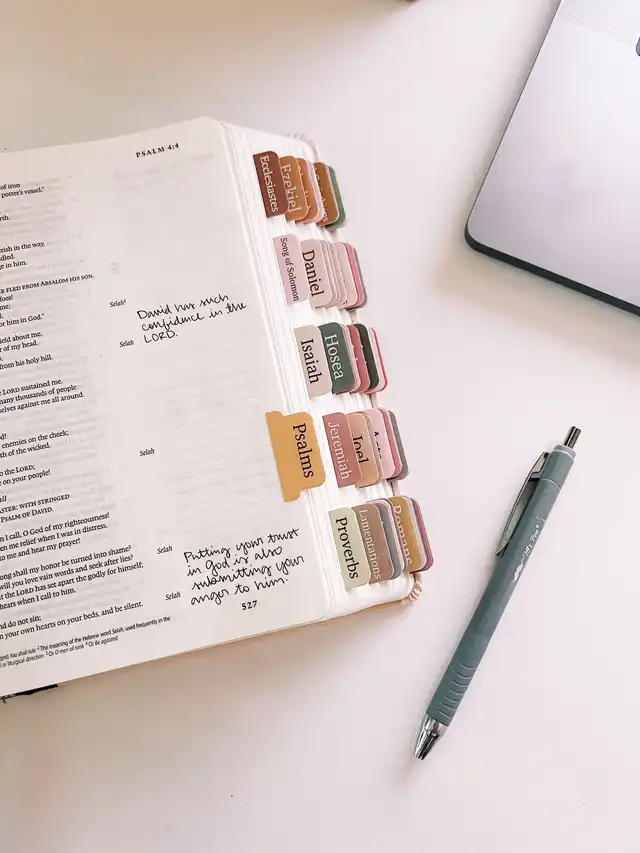 PSALM 4:4
of iron
potter's vessel."
rish in the way,
ndled.
ge in him.
FLED FROM ABSALOM HIS SON.
foes!
me;
for him in God."
Selah¹
ield about me,
of my head.
from his holy hill.
Selah
LORD sustained me.
many thousands of people
selves against me all around.
enemies on the cheek;
th of the wicked.
to the LORD;
on your people!
Selah
WITH STRINGED
PSALM OF DAVID.
I call, O God of my righteousness!
me relief when I was in distress.
to me and hear my prayer!
long shall my honor be turned into shame?
will you love vain words and seek after lies?
Selah
the LORD has set apart the godly for himself;
hears when I call to him.
and do not sin;
in your own hearts on your beds, and be silent.
Selah
² The meaning of the Hebrew word Selah, used frequently in the
or liturgical direction ³ Or O men of rank ⁴ Or Be agitated
527
David has such
confidence in the
LORD.
Putting your trust
in god is also
submitting your
anger to him.
Ecclesiastes
Ezekiel
Song of Solomon
Daniel
Isaiah
Hosea
Psalms
Jeremiah
Joel
Proverbs
Lamentations
Romans